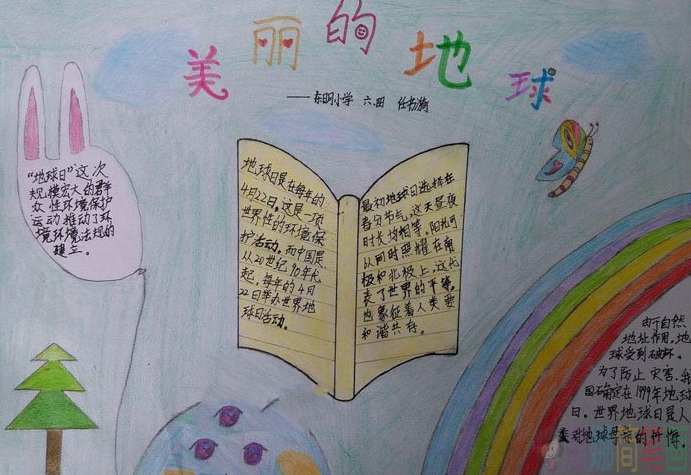 美丽的地球
——东明小学 六.四
"地球日"这次
规模宏大的群
众性环境保护
运动推动了环
境环境法规的
建立。
地球日是在每年的
4月22日。这是一项
世界性的环境保
护活动。而中国是
从20世纪90年代
起，每年的4月
22日举办世界地
球日活动。
最初地球日选择在
春分节气，这天昼夜
时长均相等。阳光可
以同时照耀在南
极和北极上，这代
表了世界的平等，
也象征着人类要
和谐共存。
由于自然
地址作用，地
球受到破坏。
为了防止灾害，我
国确定在1999年地球
日。世界地球日是人
类对地球母亲的忏悔。